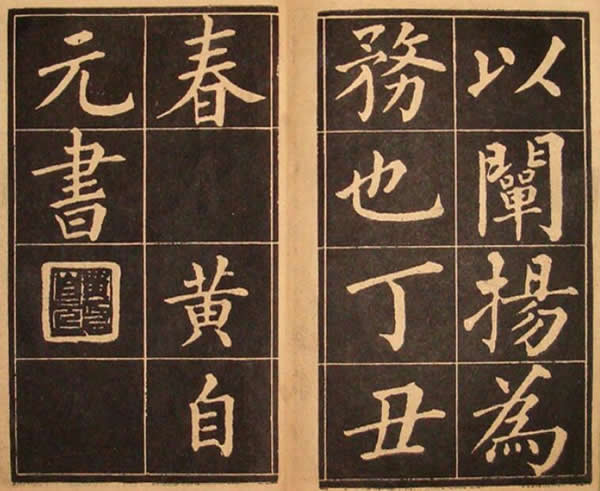 以闡揚為
務也丁丑
春黃自
元書